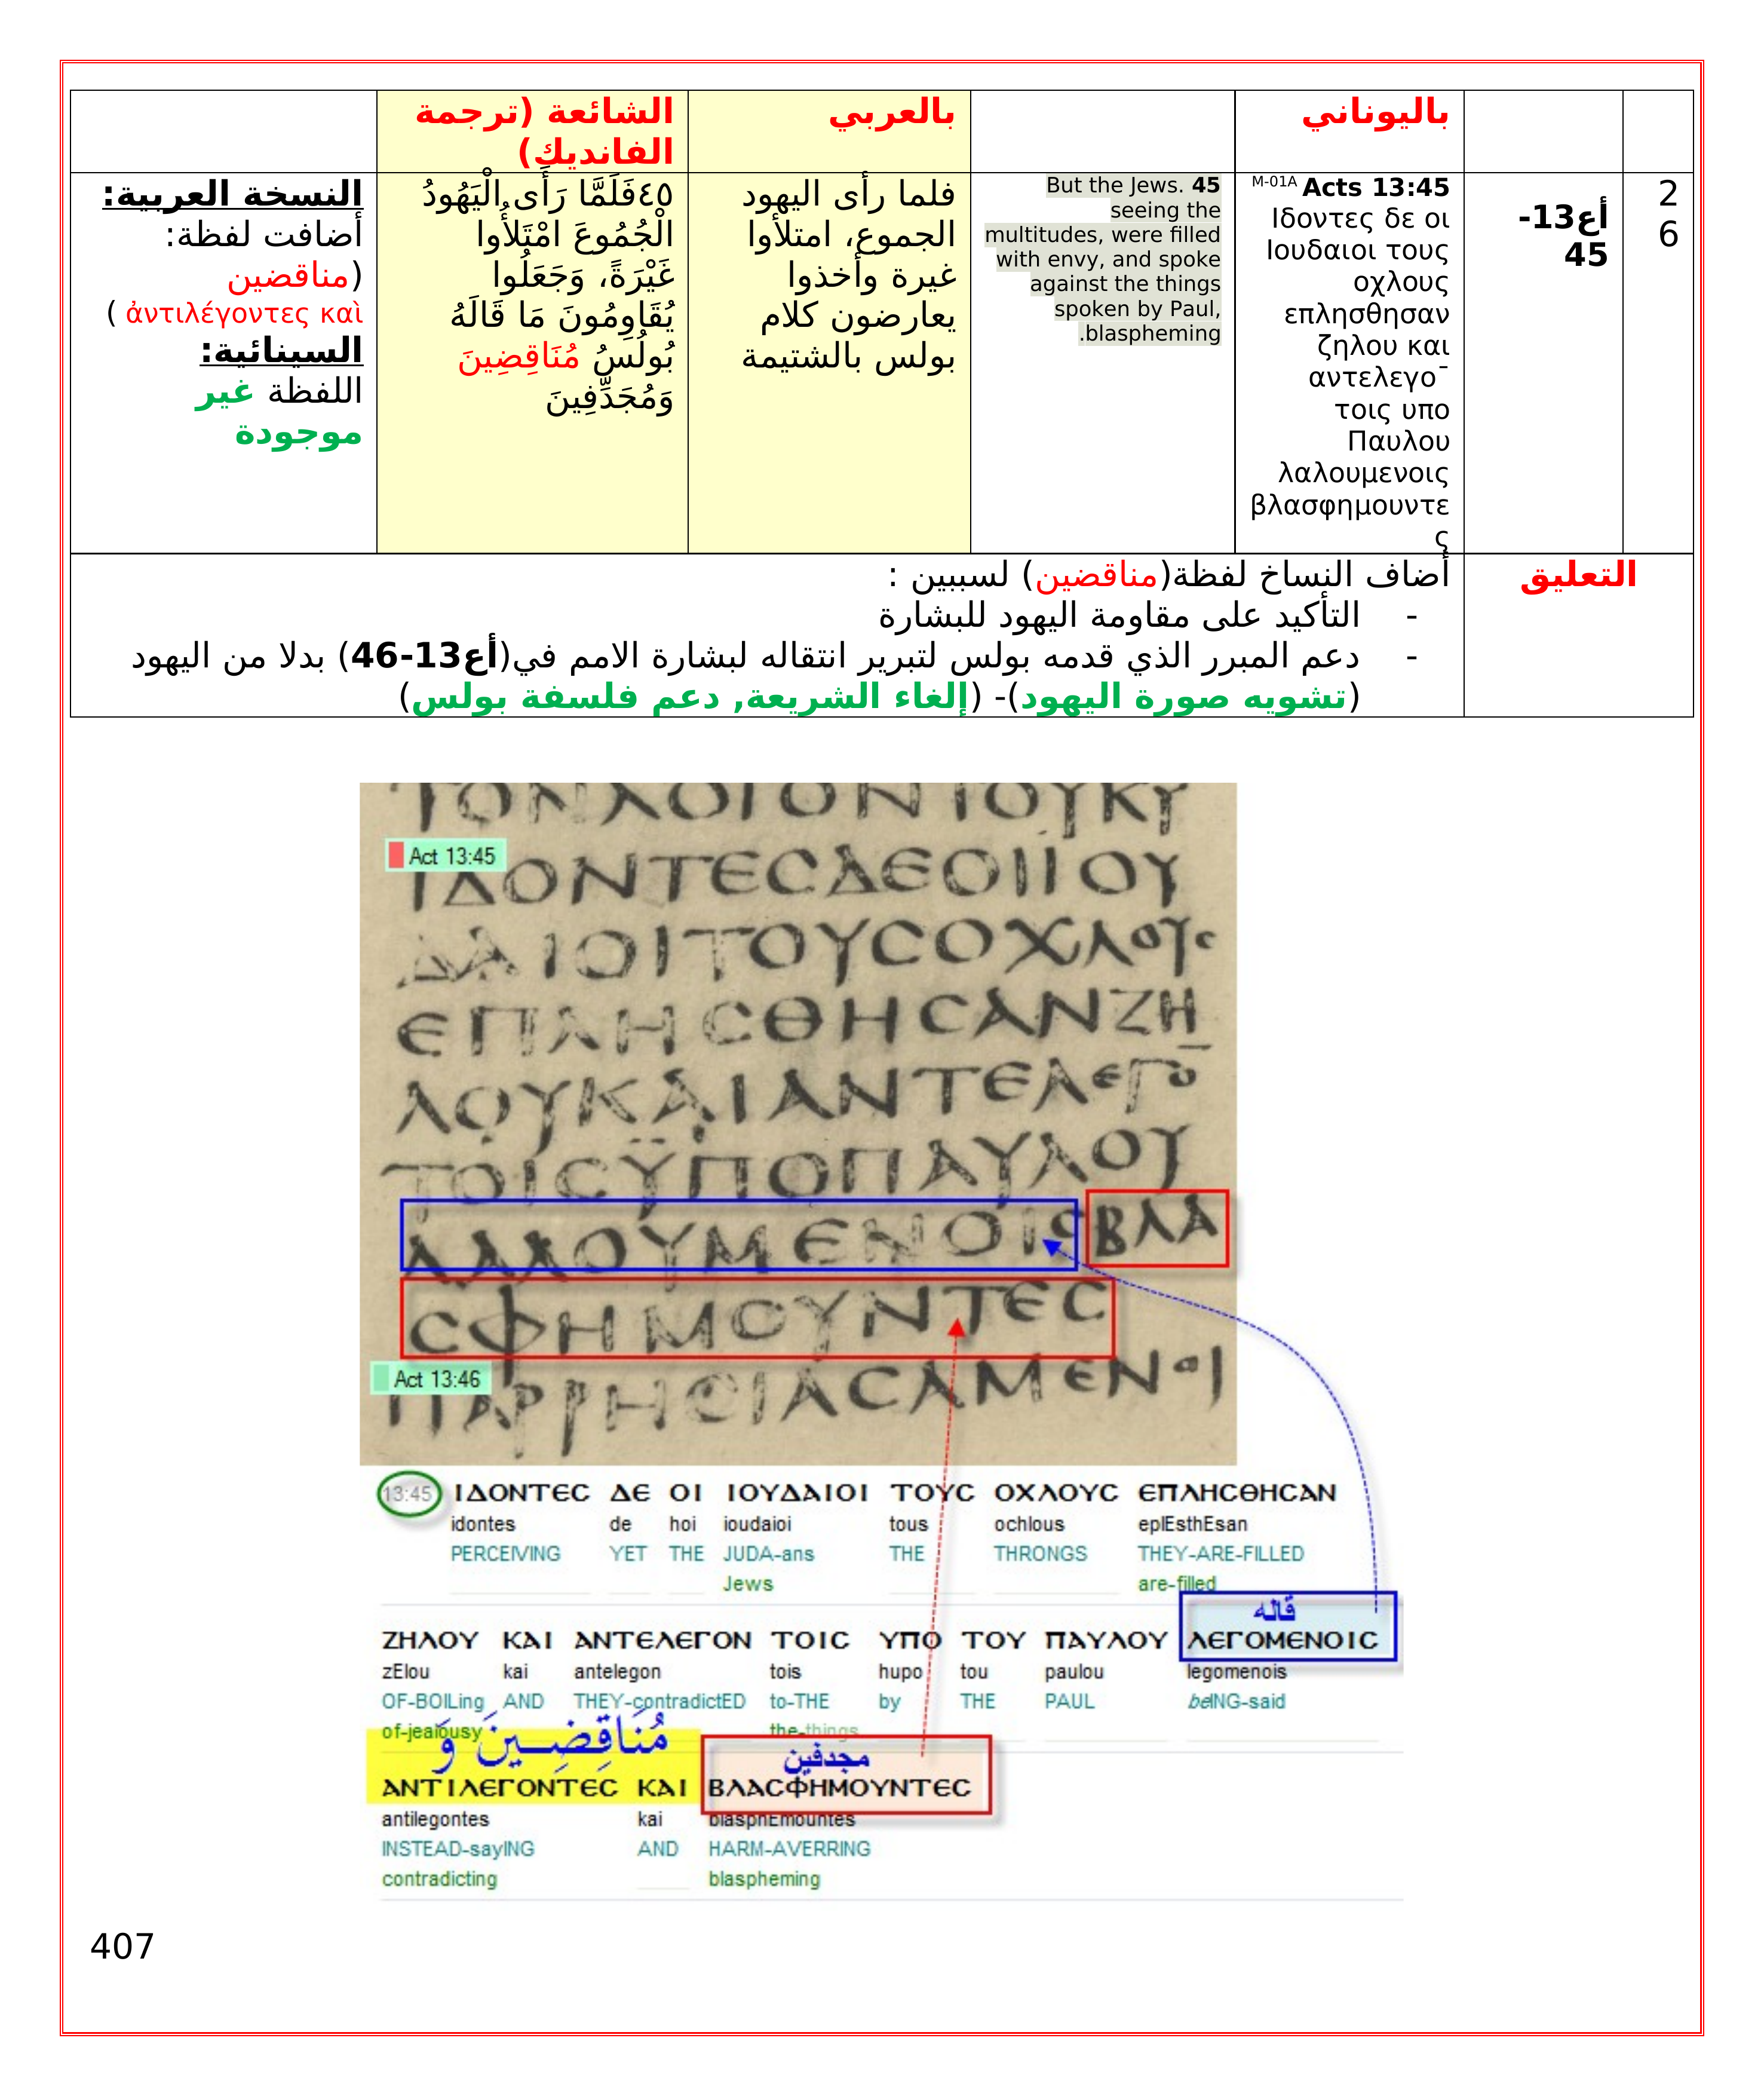 باليوناني
بالعربي
الشائعة (ترجمة
الفانديك)
2
6
أع13-
45
M-01A Acts 13:45
Ιδοντες δε οι
Ιουδαιοι τους
οχλους
επλησθησαν
ζηλου και
αντελεγο¯
τοις υπο
Παυλου
λαλουμενοις
βλασφημουντε
ς
But the Jews. 45
seeing the
multitudes, were filled
with envy, and spoke
against the things
spoken by Paul,
.blaspheming
فلما رأى اليهود
الجموع، امتلأوا
غيرة وأخذوا
يعارضون كلام
بولس بالشتيمة
٤٥فَلَمَّا رَأَى الْيَهُودُ
الْجُمُوعَ امْتَلأُوا
غَيْرَةً، وَجَعَلُوا
يُقَاوِمُونَ مَا قَالَهُ
بُولُسُ مُنَاقِضِينَ
وَمُجَدِّفِينَ
النسخة العربية:
أضافت لفظة:
(مناقضين
ἀντιλέγοντες καὶ )
السينائية:
اللفظة غير
موجودة
التعليق
أضاف النساخ لفظة(مناقضين) لسببين :
- التأكيد على مقاومة اليهود للبشارة
- دعم المبرر الذي قدمه بولس لتبرير انتقاله لبشارة الامم في(أع13-46) بدلا من اليهود
(تشويه صورة اليهود)- (إلغاء الشريعة, دعم فلسفة بولس)
ΤΟΝΛΟΓΟΝΤΟΥΚΥ
Act 13:45
ΙΔΟΝΤΕϹΔΕΟΙΙΟΥ
ΔΑΙΟΙΤΟΥϹΟΧΛΟΥϹ
ΕΠΛΗϹΘΗϹΑΝΖΗ
ΛΟΥΚΑΙΑΝΤΕΛΕΓΟ¯
ΤΟΙϹΫΠΟΠΑΥΛΟΥ
ΛΑΛΟΥΜΕΝΟΙϹΒΛΑ
ϹΦΗΜΟΥΝΤΕϹ
Act 13:46
ΠΑΡΡΗϹΙΑϹΑΜΕΝΟΙ
13:45 ΙΔΟΝΤΕϹ ΔΕ ΟΙ ΙΟΥΔΑΙΟΙ ΤΟΥϹ ΟΧΛΟΥϹ ΕΠΛΗϹΘΗϹΑΝ
idontes de hoi ioudaioi tous ochlous eplEsthEsan
PERCEIVING YET THE JUDA-ans THE THRONGS THEY-ARE-FILLED
Jews are-filled
قاله
ΖΗΛΟΥ ΚΑΙ ΑΝΤΕΛΕΓΟΝ ΤΟΙϹ ΥΠΟ ΤΟΥ ΠΑΥΛΟΥ ΛΕΓΟΜΕΝΟΙϹ
zElou kai antelegon tois hupo tou paulou legomenois
OF-BOILing AND THEY-contradictED to-THE by THE PAUL beING-said
of-jealousy the-things
مُنَاقِضِينَ وَ
مجدفين
ΑΝΤΙΛΕΓΟΝΤΕϹ ΚΑΙ ΒΛΑϹΦΗΜΟΥΝΤΕϹ
antilegontes kai blasphEmountes
INSTEAD-sayING AND HARM-AVERRING
contradicting blaspheming
407